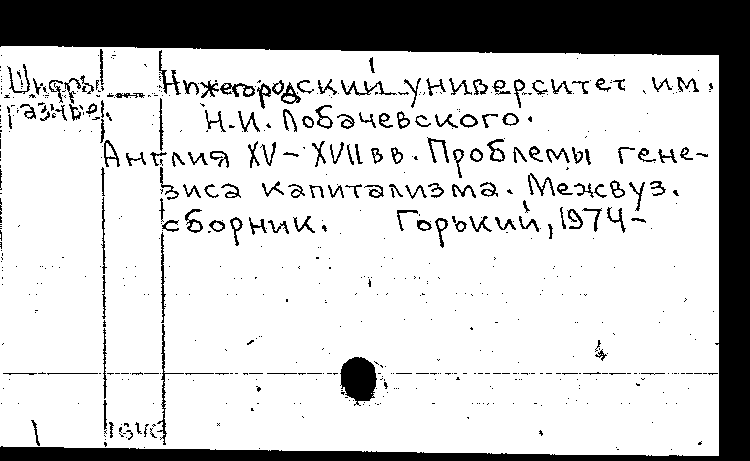 Шифры Нижегородский университет им.
разные. Н.И. Лобачевского.
Англия XV – XVII вв. Проблемы гене-
зиса капитализма. Межвуз.
сборник. Горький, 1974-